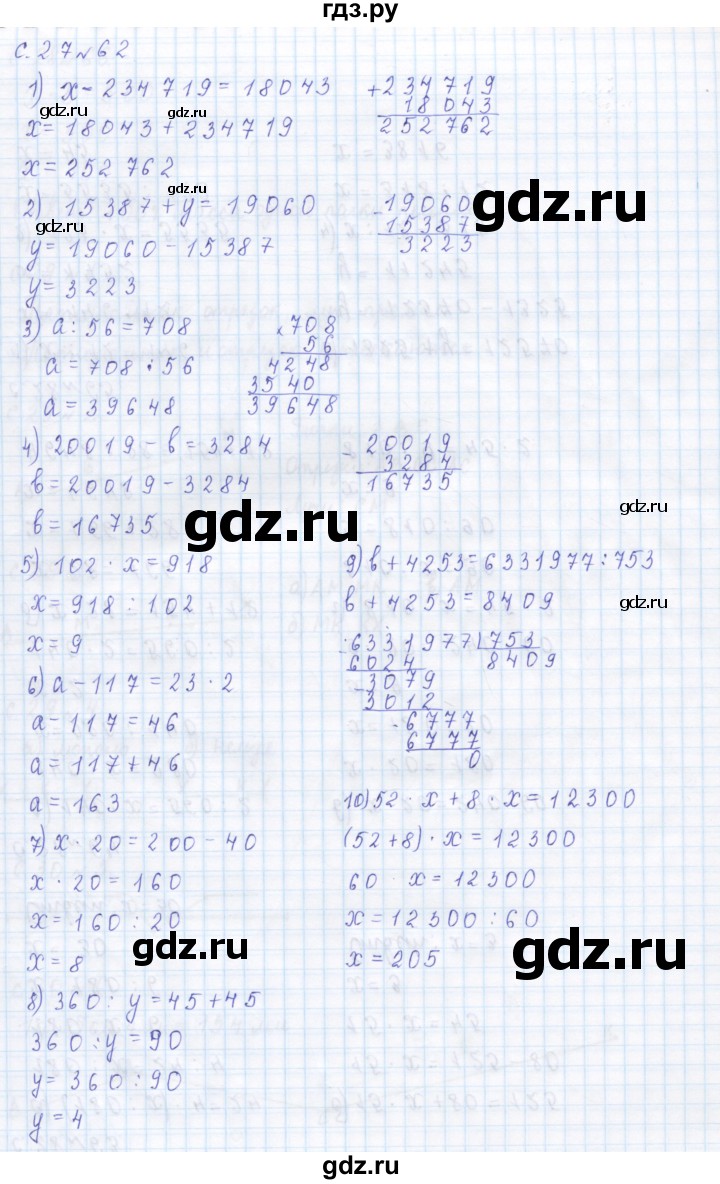 гдз.ру
с. 27 № 62
1) x - 234 719 = 18 043
x = 18 043 + 234 719
x = 252 762
+ 234 719
18 043
252 762
gdz.ru
gdz.ru
2) 15387 + y = 19060
y = 19060 - 15387
y = 3223
- 19060
15387
3223
gdz.ru
gdz.ru
gdz.ru
3) a : 56 = 708
a = 708 · 56
a = 39648
x 708
56
4248
3540
39648
4) 20019 - b = 3284
b = 20019 - 3284
b = 16735
- 20019
3284
16735
gdz.ru
gdz.ru
5) 102 · x = 918
x = 918 : 102
x = 9
6) a - 117 = 23 · 2
a - 117 = 46
a = 117 + 46
a = 163
7) x · 20 = 200 - 40
x · 20 = 160
x = 160 : 20
x = 8
gdz.ru
8) 360 : y = 45 + 45
360 : y = 90
y = 360 : 90
y = 4
9) b + 4253 = 6331977 : 753
b + 4253 = 8409
gdz.ru
- 6331977 | 753
6024 8409
- 3079
3012
- 6777
6777
0
10) 52 · x + 8 · x = 12300
(52 + 8) · x = 12300
60 · x = 12300
x = 12300 : 60
x = 205
gdz.ru
gdz.ru
gdz.ru